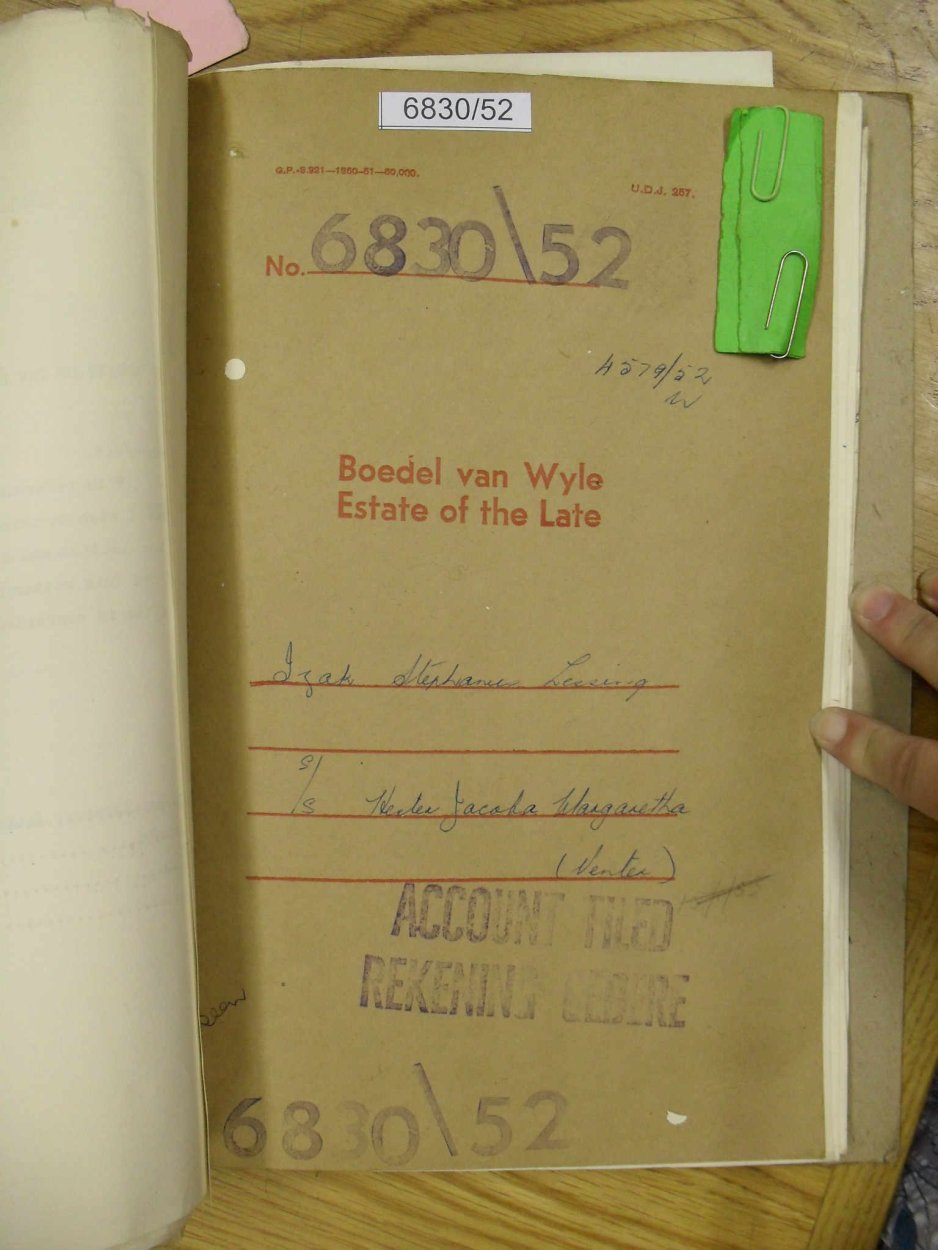 6830/52
G.P.-S.921—1950-51—60,000.
U.D.J. 257.
No. 6830\52
4579/52
Boedel van Wyle
Estate of the Late
Izak Stephanus Lessing
s/s Hester Jacoba Margaretha
(Venter)
ACCOUNT FILED
REKENING
6830\52